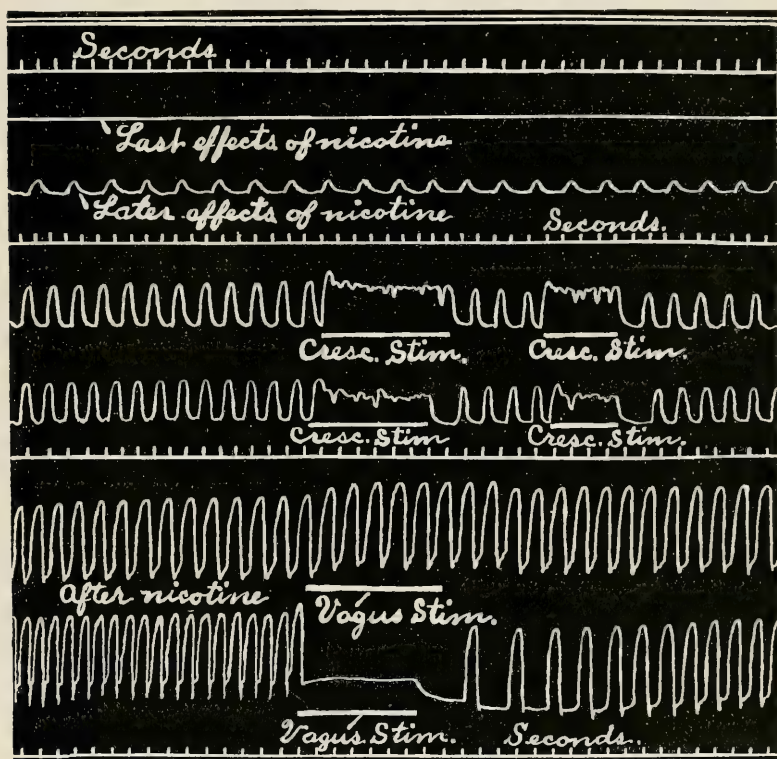 Seconds
Last effects of nicotine
Later effects of nicotine Seconds.
Cresc. Stim. Cresc. Stim.
Cresc. Stim Cresc. Stim.
After nicotine
Vagus Stim.
Vagus Stim. Seconds.